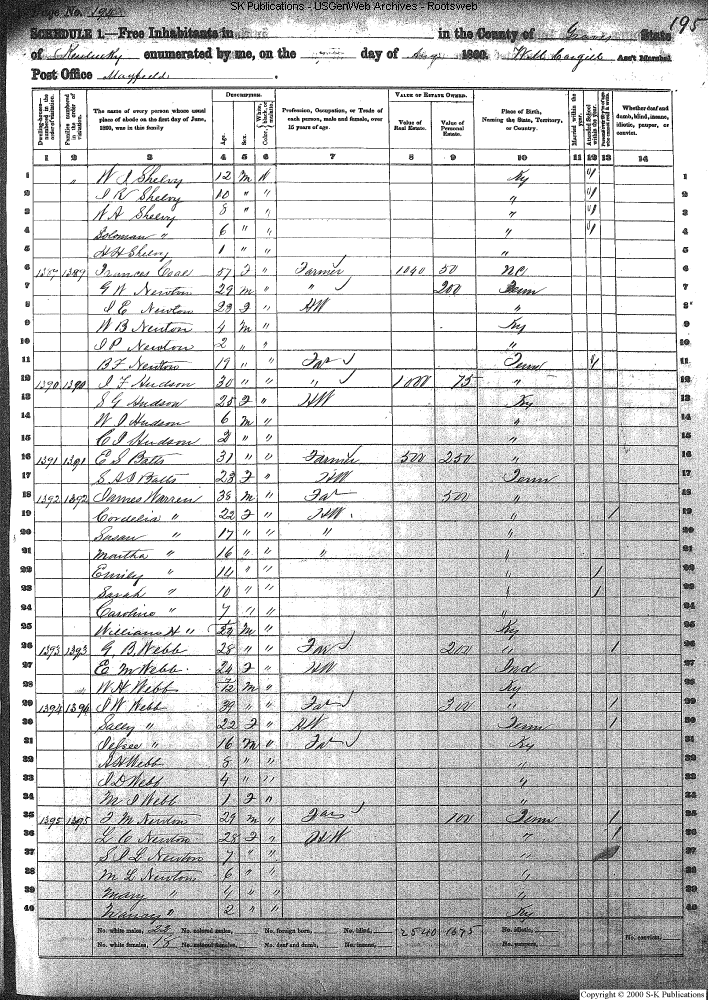 SK Publications - USGenWeb Archives - Rootsweb
Page No. 195
195
SCHEDULE 1.—Free Inhabitants in in the County of Graves State
of Kentucky enumerated by me, on the day of Aug 1860. Will Cargill Ass't Marshal.
Post Office Mayfield.
Dwelling-houses—numbered in the order of visitation.
Families numbered in the order of visitation.
The name of every person whose usual place of abode on the first day of June, 1860, was in this family
DESCRIPTION.
Age.
Sex.
Color
Profession, Occupation, or Trade of each person, male and female, over 15 years of age.
VALUE OF ESTATE OWNED.
Value of Real Estate.
Value of Personal Estate.
Place of Birth, Naming the State, Territory, or Country.
Married within the year.
Attended School within the year.
Whether deaf and dumb, blind, insane, idiotic, pauper, or convict.
1 2 3 4 5 6 7 8 9 10 11 12 13 14
1 " W J Shelvy 12 m W Ky 1
2 J R Shelvy 10 " " " 2
3 N A Shelvy 8 " " " 3
4 Soloman " 6 " " " 4
5 H H Shelvy 1 " " " 5
6 1389 1389 Frances Coal 57 F " Farmer 1040 50 NC 6
7 G W Newton 29 m " " 200 Tenn 7
8 J E Newton 23 F " HW " 8
9 W B Newton 4 m " Ky 9
10 J P Newton 2 " " " 10
11 B F Newton 19 " " Far Tenn 11
12 1390 1390 J F Hudson 30 " " " 1000 75 " 12
13 S G Hudson 25 F " HW Ky 13
14 W J Hudson 6 m " " 14
15 C J Hudson 2 " " " 15
16 1391 1391 E S Batts 31 " " Farmer 500 250 " 16
17 S A J Batts 23 F " HW Tenn 17
18 1392 1392 James Warren 38 m " Far 500 " 18
19 Cordelia " 22 F " HW. " / 19
20 Susan " 17 " " " " 20
21 Martha " 16 " " " " 21
22 Emily " 14 " " " / 22
23 Sarah " 10 " " " / 23
24 Caroline " 7 " " " 24
25 William H " m " Ky 25
26 1393 1393 G B. Webb 28 " " Far 200 " / 26
27 E M Webb. 24 F " HW Ind 27
28 W H Webb m " Ky 28
29 1394 1394 J W Webb 39 " " Far 300 " / 29
30 Sally " 22 F " HW Tenn / 30
31 Jefsee " 16 m " Far Ky 31
32 A H Webb 8 " " " 32
33 J D Webb 4 " " " 33
34 M J Webb 1 F " " 34
35 1395 1395 F M Newton 29 m " Far 100 Tenn / 35
36 L C Newton 28 F " HW " / 36
37 S J L Newton 7 " " " 37
38 M L Newton 6 " " " 38
39 Mary " 4 " " " 39
40 Nancy " 2 " " Ky 40
No. white males, 22 No. colored males, No. foreign born, No. blind, 2540 1675 No. idiotic,
No. white females, 18 No. colored females, No. deaf and dumb, No. insane, No. paupers, No. convicts,
Copyright © 2000 S-K Publications